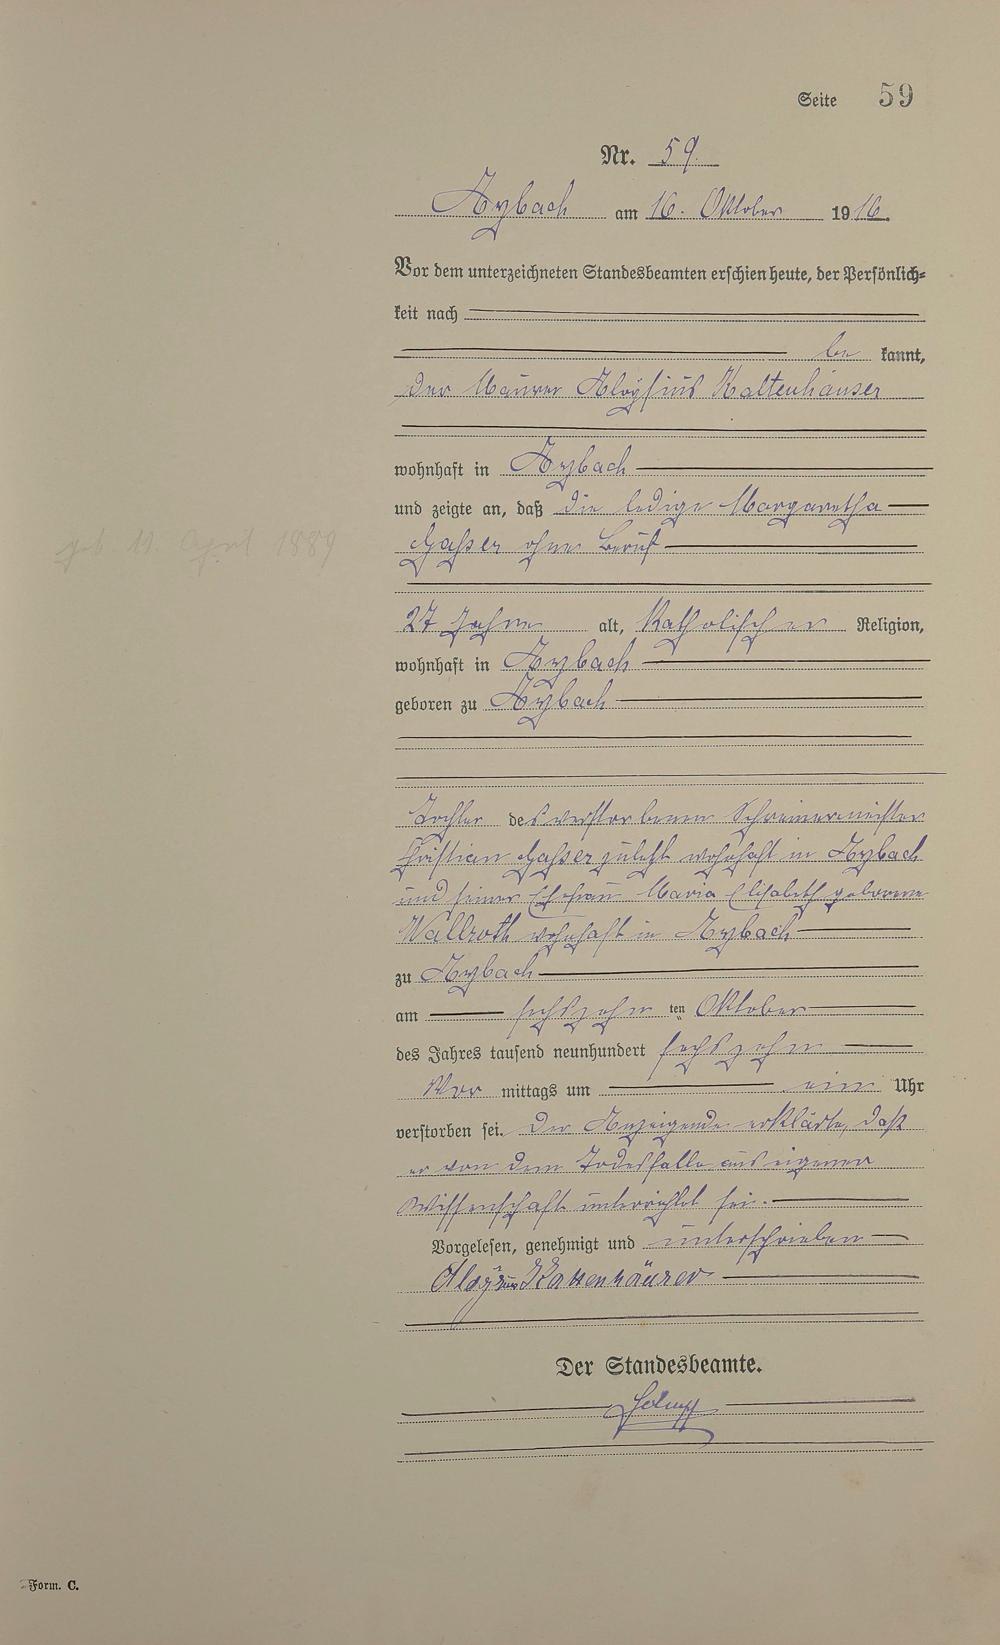 Seite 59
Nr. 59.
Asbach am 16. Oktober 1916.
Vor dem unterzeichneten Standesbeamten erschien heute, der Persönlich-
keit nach
be kannt,
der Maurer Aloysius Kaltenhäuser
wohnhaft in
und zeigte an, daß die ledige Margaretha
Gasser ohne Beruf
geb. 11 April 1889
27 Jahre alt, Katholischer Religion,
wohnhaft in
geboren zu
Tochter des verstorbenen Schreinermeister
Christian Gasser zuletzt wohnhaft in
und seiner Ehefrau Maria Elisabeth geborene
Wallroth wohnhaft in
zu
am sechszehn ten Oktober
des Jahres tausend neunhundert sechszehn
Vor mittags um ein Uhr
verstorben sei. Der Anzeigende erklärte, daß
er von dem Todesfalle aus eigener
Wissenschaft unterrichtet sei.
Vorgelesen, genehmigt und unterschrieben
Aloysius Kaltenhäuser
Der Standesbeamte.
Form. C.